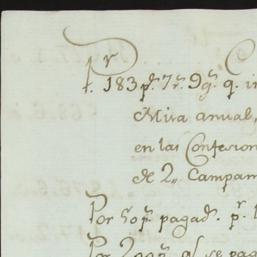 Pr. 183 p. 7 r. 9 g. q. i
Mira anual,
en las Confesion
de 2,, Campam
Por 50 p. pagad. p. l
Por 2 p. q. se pag